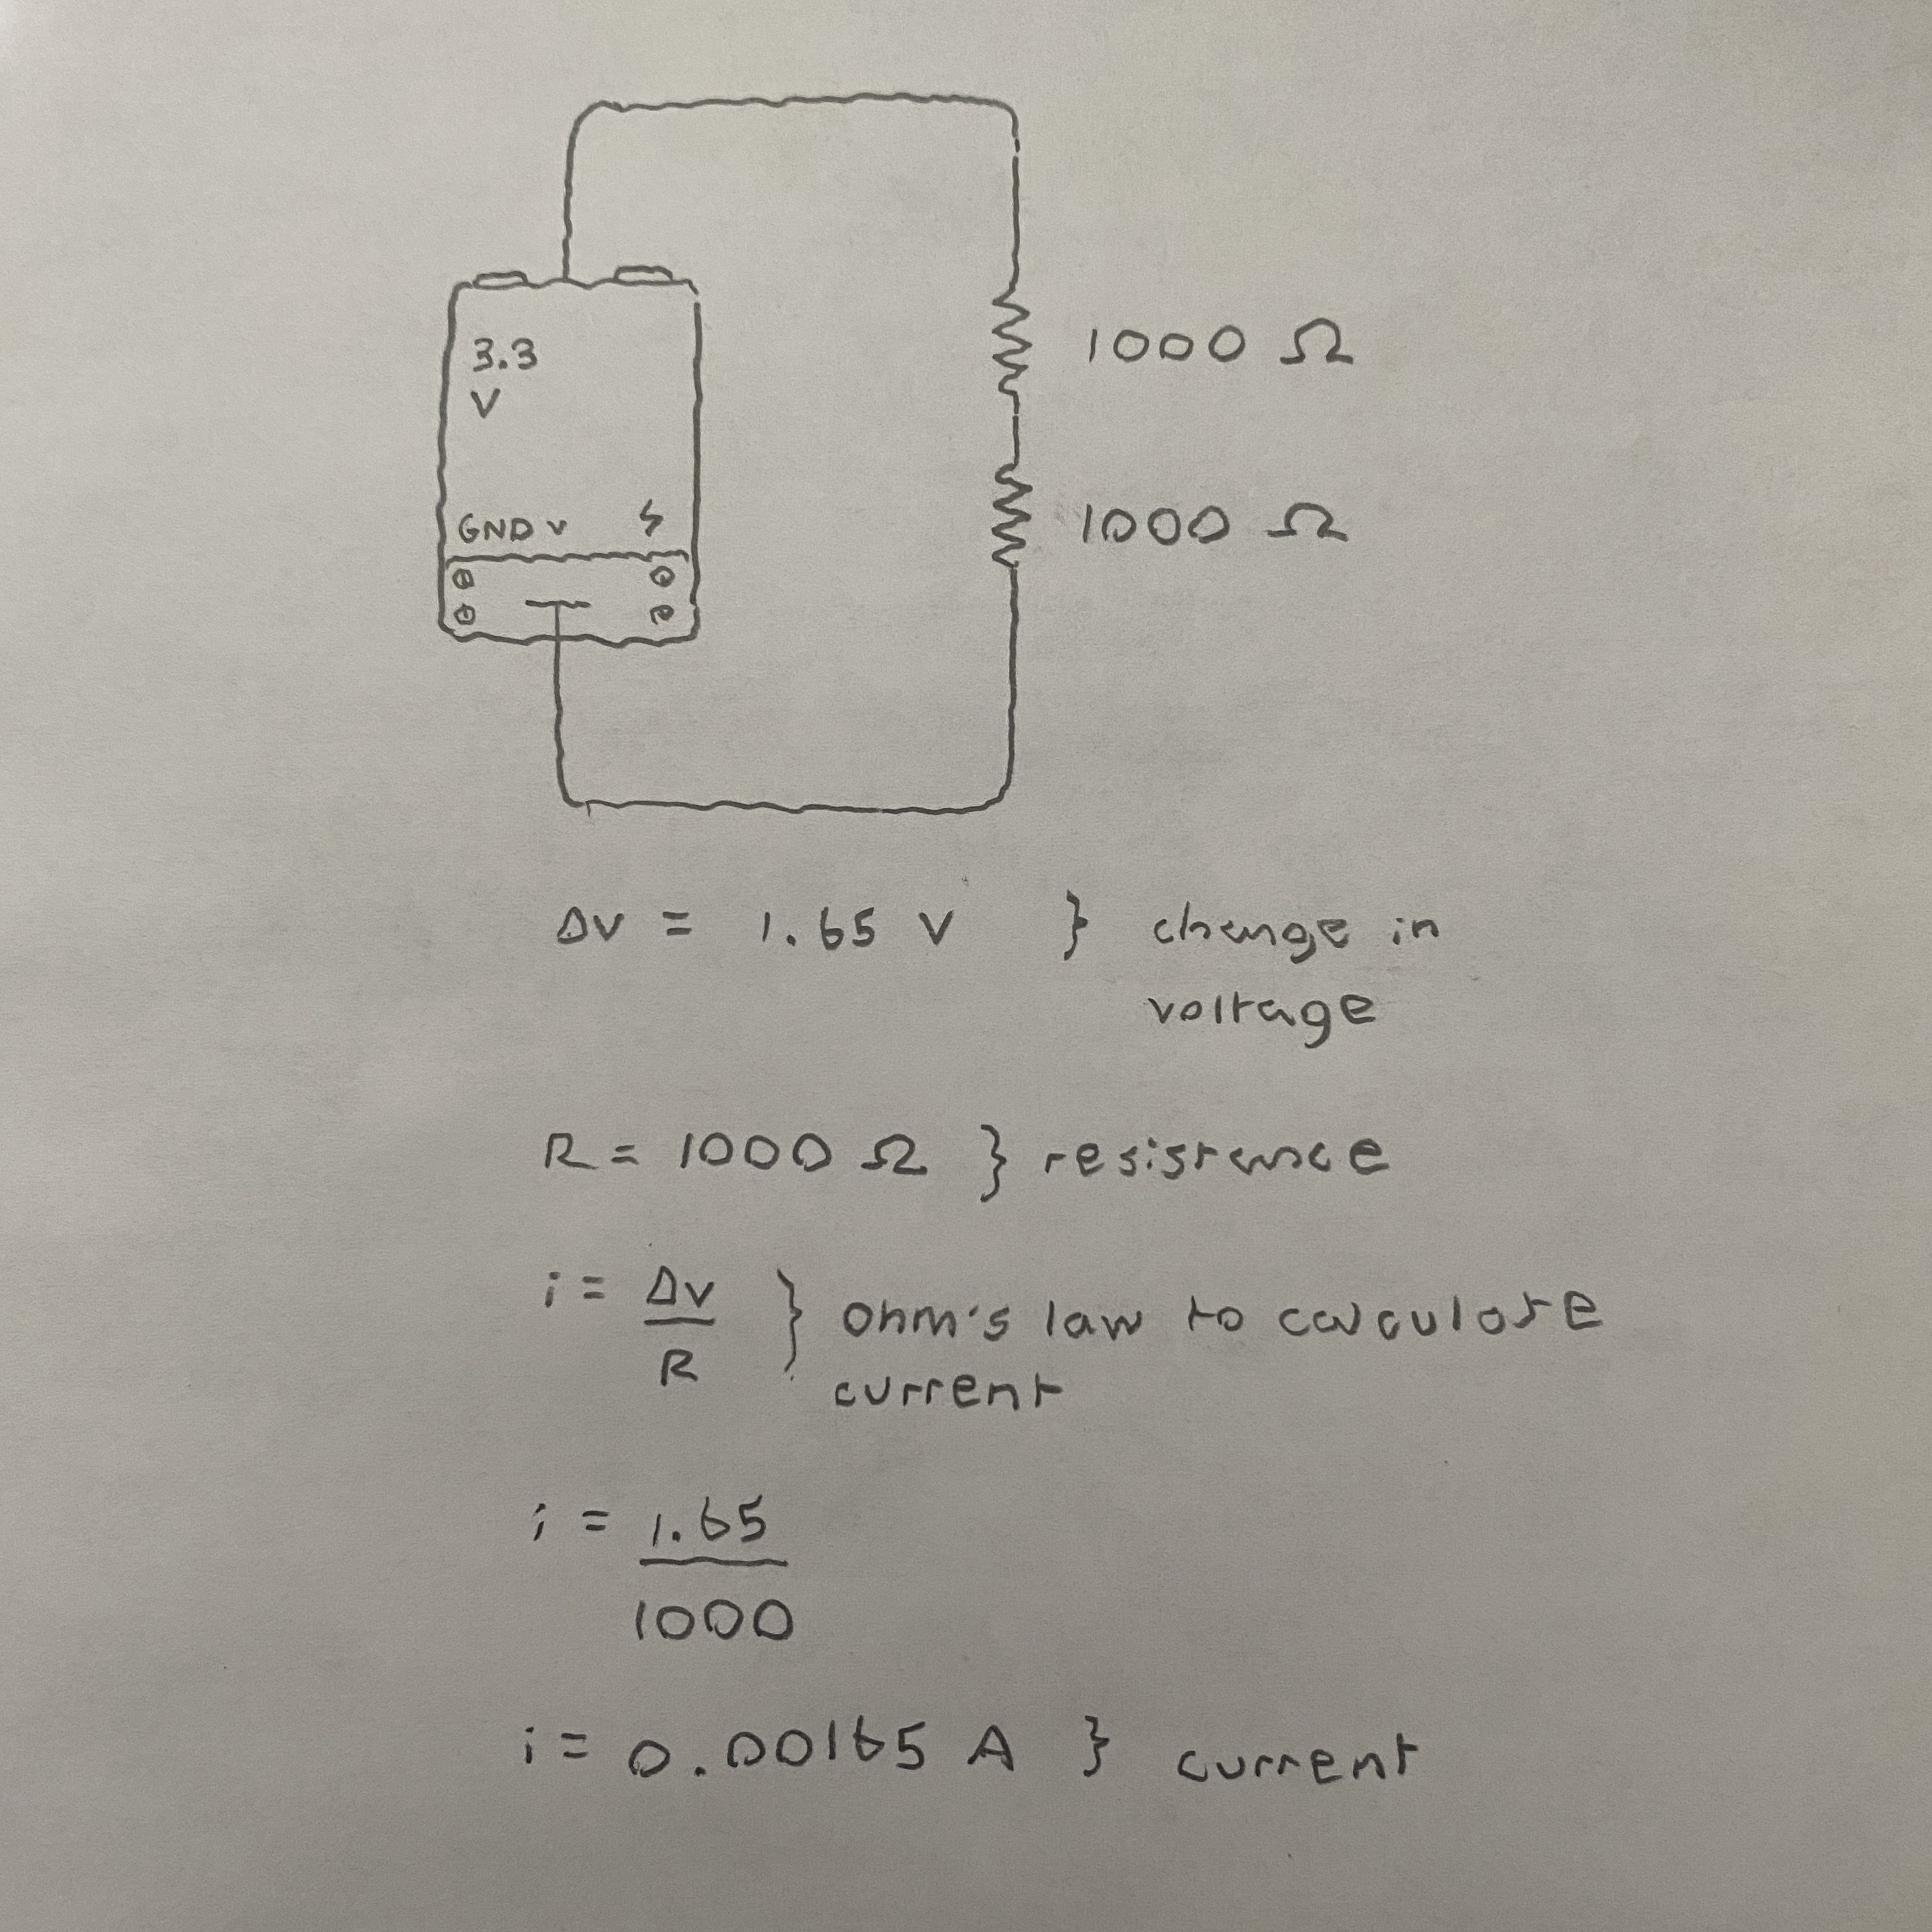 3.3
V
GND V
1000 Ω
1000 Ω
Δv = 1.65 V } change in
voltage
R = 1000 Ω } resistance
i = Δv / R } ohm's law to calculate
current
i = 1.65
1000
i = 0.00165 A } current